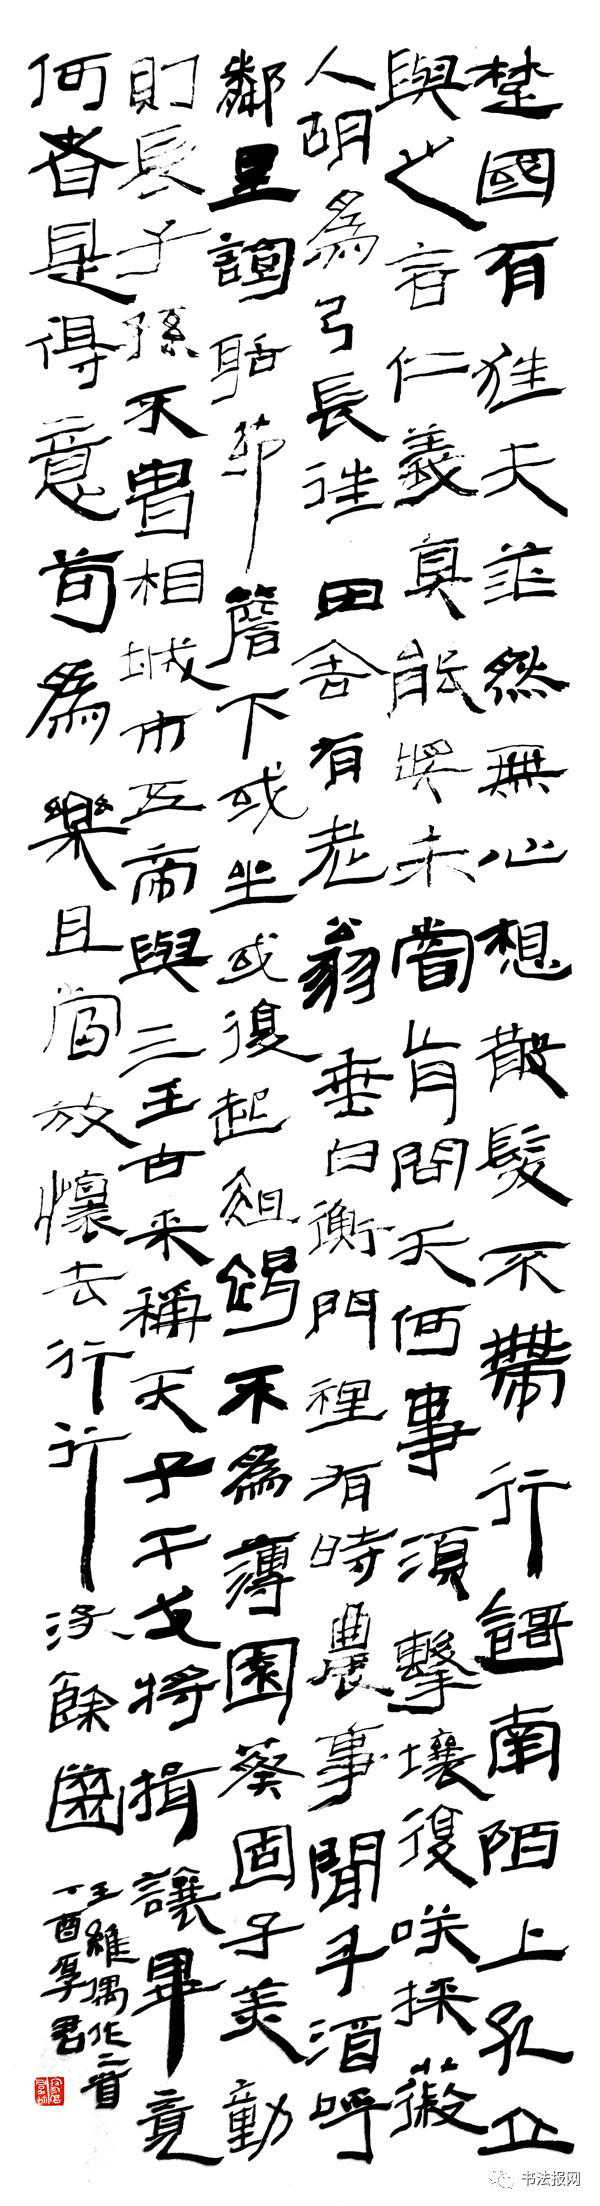 楚國有狂夫茫然無心想散髮不帶行謌南陌上孔丘
與之言仁義莫能獎未嘗肯問天何事須擊壤復咲採薇
人胡為乃長往田舍有老翁垂白衡門裡有時農事閒斗酒呼
鄰里諠聒茆簷下或坐或復起短褐不為薄園葵固子美動
則長子孫不曾相城市五帝與三王古來稱天子干戈將揖讓畢竟
何者是得意苟為樂且當放懷去行行沒餘齒
王維偶作二首
丁酉厚君
书法报网